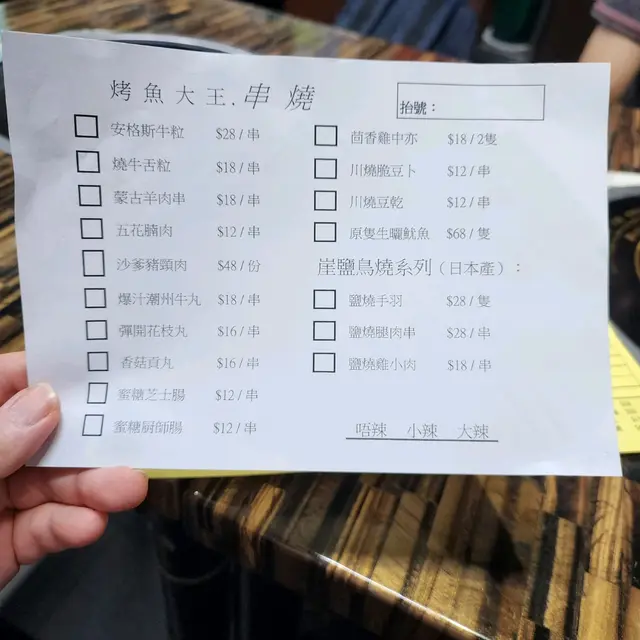 烤魚大王.串燒
抬號：
安格斯牛粒 $28/串
燒牛舌粒 $18/串
蒙古羊肉串 $18/串
五花腩肉 $12/串
沙爹豬頸肉 $48/份
爆汁潮州牛丸 $18/串
彈開花枝丸 $16/串
香菇貢丸 $16/串
蜜糖芝士腸 $12/串
蜜糖厨師腸 $12/串
茴香雞中亦 $18/2隻
川燒脆豆卜 $12/串
川燒豆乾 $12/串
原隻生曬魷魚 $68/隻
崖鹽鳥燒系列（日本產）：
鹽燒手羽 $28/隻
鹽燒腿肉串 $28/串
鹽燒雞小肉 $18/串
唔辣 小辣 大辣